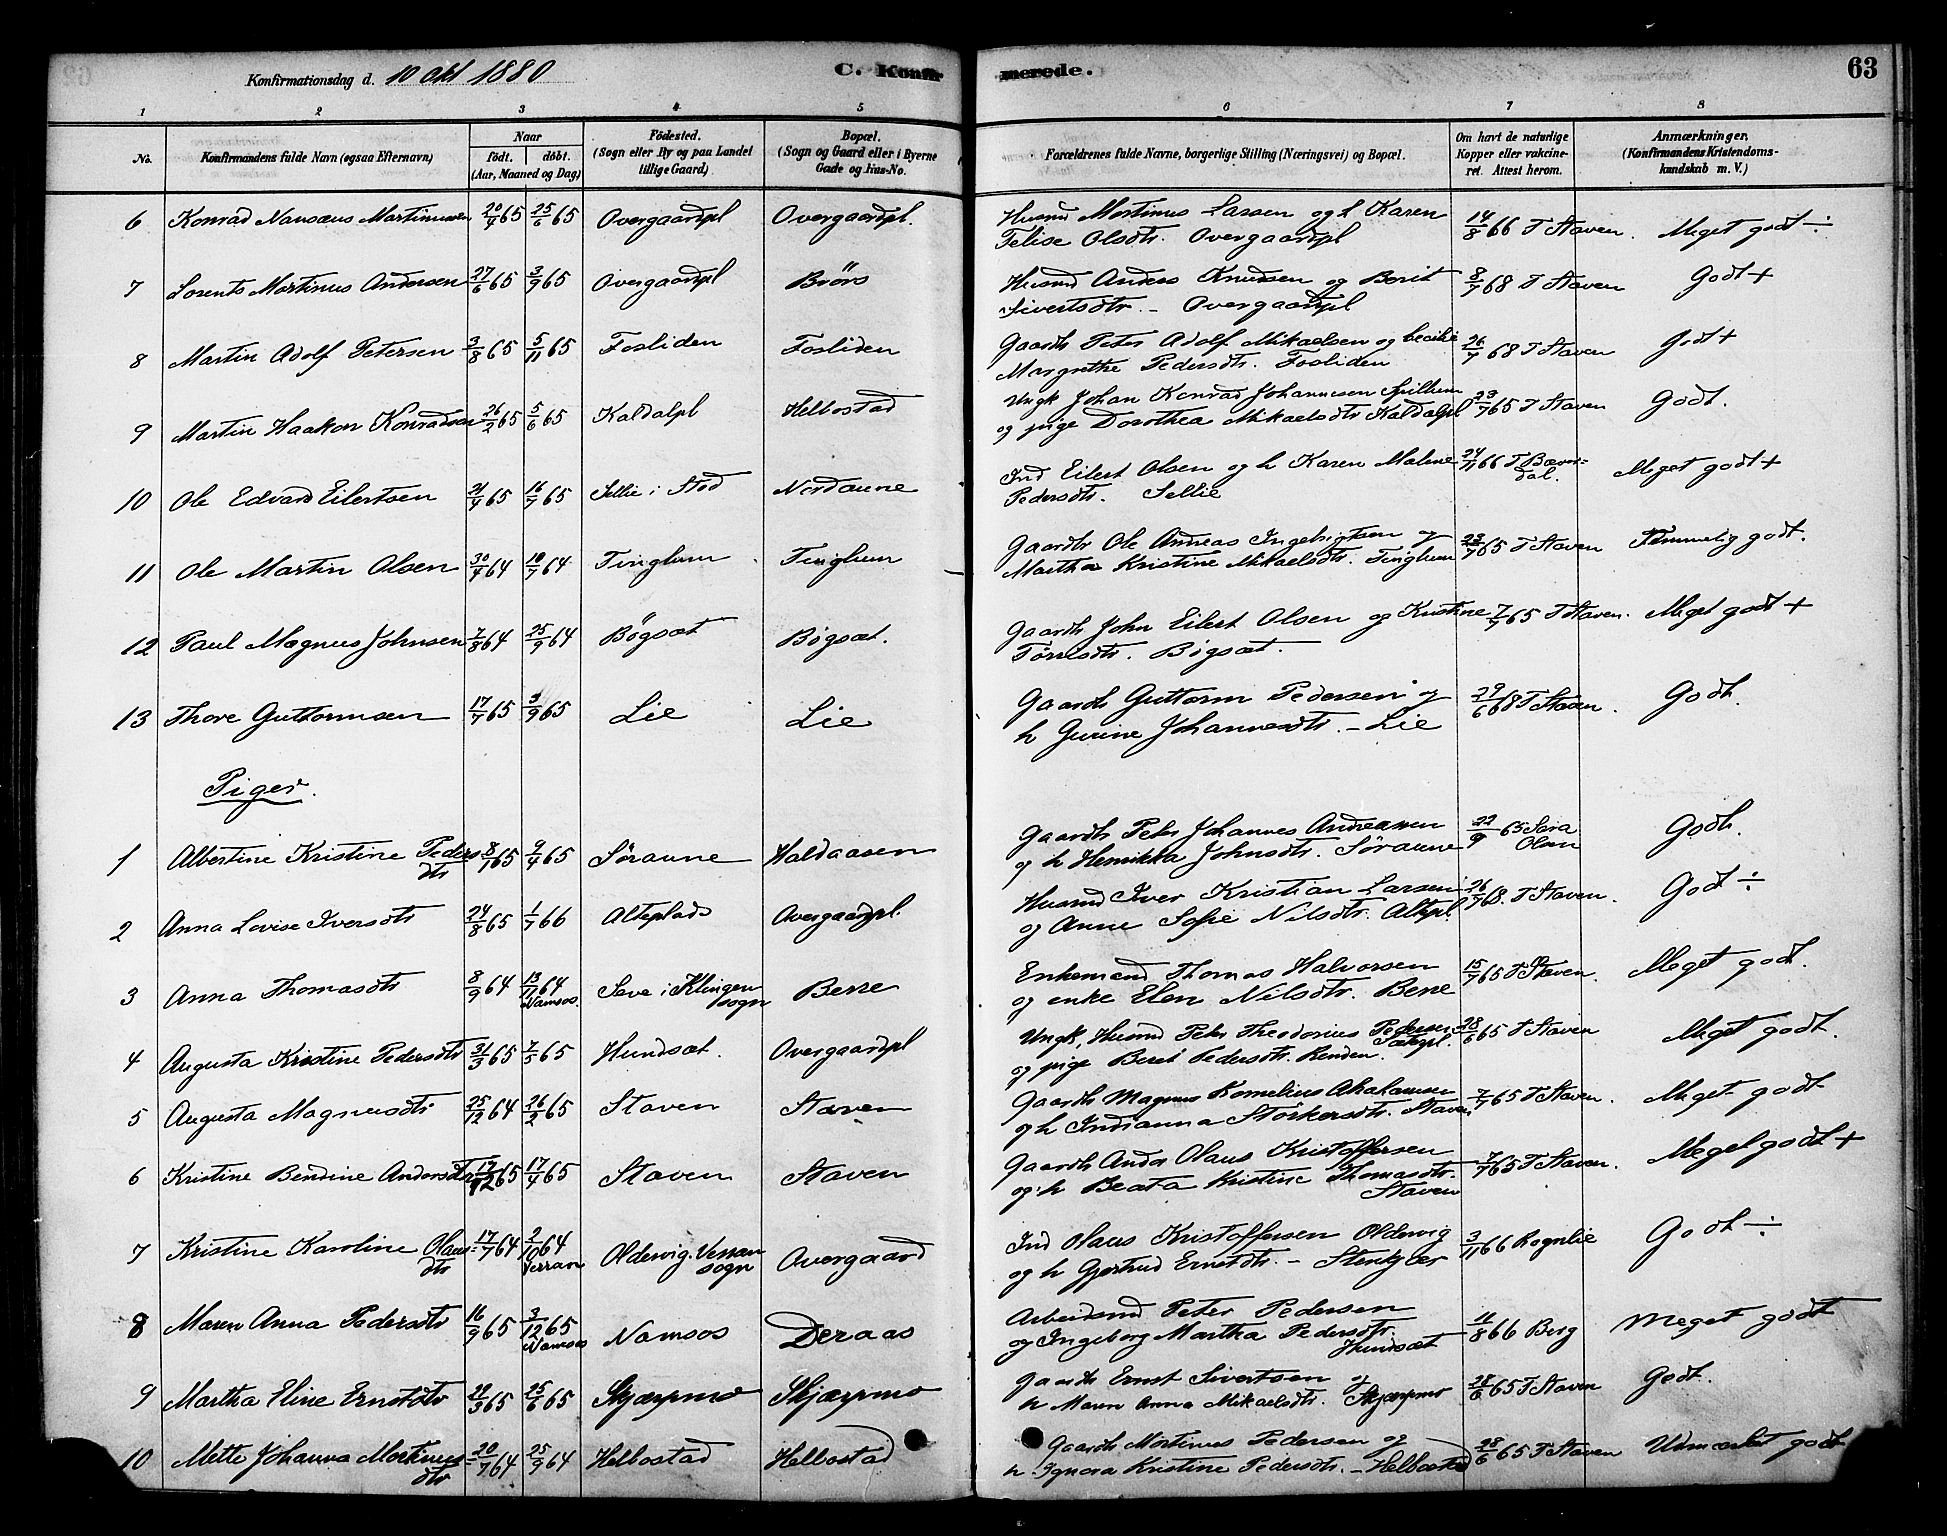 Konfirmationsdag d. 10 Okt 1880
C. Konfirmerede.
63
1 2 3 4 5 6 7 8
No.
Konfirmandens fulde Navn (ogsaa Efternavn)
Naar
født. døbt.
(Aar, Maaned og Dag)
Fødested.
(Sogn eller By og paa Landet
tillige Gaard)
Bopæl.
(Sogn og Gaard eller i Byerne
Gade og Hus-No.
Forældrenes fulde Navne, borgerlige Stilling (Næringsvei) og Bopæl.
Om havt de naturlige
Kopper eller vakcine-
ret. Attest herom.
Anmærkninger.
(Konfirmandens Kristendoms-
kundskab m. V.)
6 Konrad Nansæus Martinussen 20/4 65 25/6 65 Overgaardpl Overgaardpl. Husmd Martinus Lassen og h Karen 14/8 66 T Staven. Meget godt ÷
Felise Olsdtr. Overgaardpl
7 Lorents Martinus Andersen 27/6 65 3/9 65 Overgaardpl Brörs Husmd Anders Knudsen og Berit 8/7 68 T Staven Godt +
Sivertsdtr. - Overgaardpl
8 Martin Adolf Petersen 3/8 65 5/11 65 Fosliden Fosliden Gaardb Peter Adolf Mikaelsen og Cecilie 26/7 68 T Staven Godt +
Margrethe Pedersdtr. Fosliden
9 Martin Haakon Konradsen 26/2 65 5/6 65 Kaldalpl Helbostad Ungk Johan Konrad Johannesen Spillum 23/7 65 T Staven Godt.
og pige Dorothea Mikaelsdtr Kaldalpl
10 Ole Edvard Eilertsen 21/4 65 16/7 65 Sellie i Stod Nordaune Ind Eilert Olsen og h Karen Malene 24/11 66 T Bæver-
dal. Meget godt +
Pedersdtr. Sellie
11 Ole Martin Olsen 30/4 64 10/7 64 Tinglum Tinglum Gaardb Ole Andreas Ingebrigtsen og 23/7 65 T Staven Temmelig godt.
Martha Kristine Mikaelsdtr. Tinglum
12 Paul Magnus Johnsen 7/8 64 25/9 64 Bögsæt Bögsæt. Gaardb John Eilert Olsen og Kristine 7/7 65 T Staven. Meget godt +
Tørrisdtr. Bøgsæt.
13 Thore Guttormsen 17/7 65 3/9 65 Lie Lie Gaardb Guttorm Pedersen og 29/6 68 T Staven. Godt.
h Gurine Johannesdtr. - Lie
Piger.
1 Albertine Kristine Peders
dtr 8/1 65 9/4 65 Søraune Haldaasen Gaardb Peter Johannes Andreassen 22/9 65 Sara
Olsen Godt.
og h Henrikka Johnsdtr. Søraune
2 Anna Lovise Iversdtr 24/8 65 1/7 66 Alteplads Overgaardpl. Husmd Iver Kristian Larsen 26/7 68. T Staven. Godt ÷
og Anne Sofie Nilsdtr. Altepl.
3 Anna Thomasdtr 8/9 64 13/11 64
Namsos. Save i Klingen
sogn Berre Enkemand Thomas Halvorsen 15/7 65 T Staven. Meget godt.
og enke Elen Nilsdtr. Berre
4 Augusta Kristine Pedersdtr 31/3 65 7/5 65 Hundsæt. Overgaardpl Ungk, Husmd Peter Theodorius Pedersen 28/6 65 T Staven Meget godt.
og pige Beret Pedersdtr. Renden.
5 Augusta Magnusdtr 25/12 64 26/2 65 Staven Staven Gaardb Magnus Kornelius Abrahamsen 7/7 65 T Staven. Meget godt
og h Indianna Storkersdtr. Staven
6 Kristine Bendine Andersdtr 17/2 65 17/4 65 Staven Staven Gaardb Anders Olaus Kristoffersen 7/7 65 T Staven. Meget godt +
og h Beata Kristine Thomasdtr.
Staven
7 Kristine Karoline Olaus-
dtr 17/7 64 2/10 64
Verran Oldervig. Verran
sogn Overgaard Ind Olaus Kristoffersen Oldervig 3/11 66 Rognlie Godt ÷
og h Gjertrud Ernstdtr. - Stenkjær
8 Maren Anna Pedersdtr 16/9 65 3/12 65
Namsos Namsos Deraas Arbeidsmd Peter Pedersen 11/8 66 Berg Meget godt
og Ingeborg Martha Pedersdtr.
Hundsæt
9 Martha Eline Ernstdtr 22/3 65 25/6 65 Skjærpmo Skjærpmo Gaardb Ernst Sivertsen og 28/6 65 T Staven Godt.
h Maren Anna Mikaelsdtr. Skjærpmo
10 Mette Johanna Martinus-
dtr 20/7 64 25/9 64 Helbostad Helbostad Gaardb Martinus Pedersen og 28/6 65 T Staven Udmærket godt
h Ignora Kristine Pedersdtr. - Helbostad